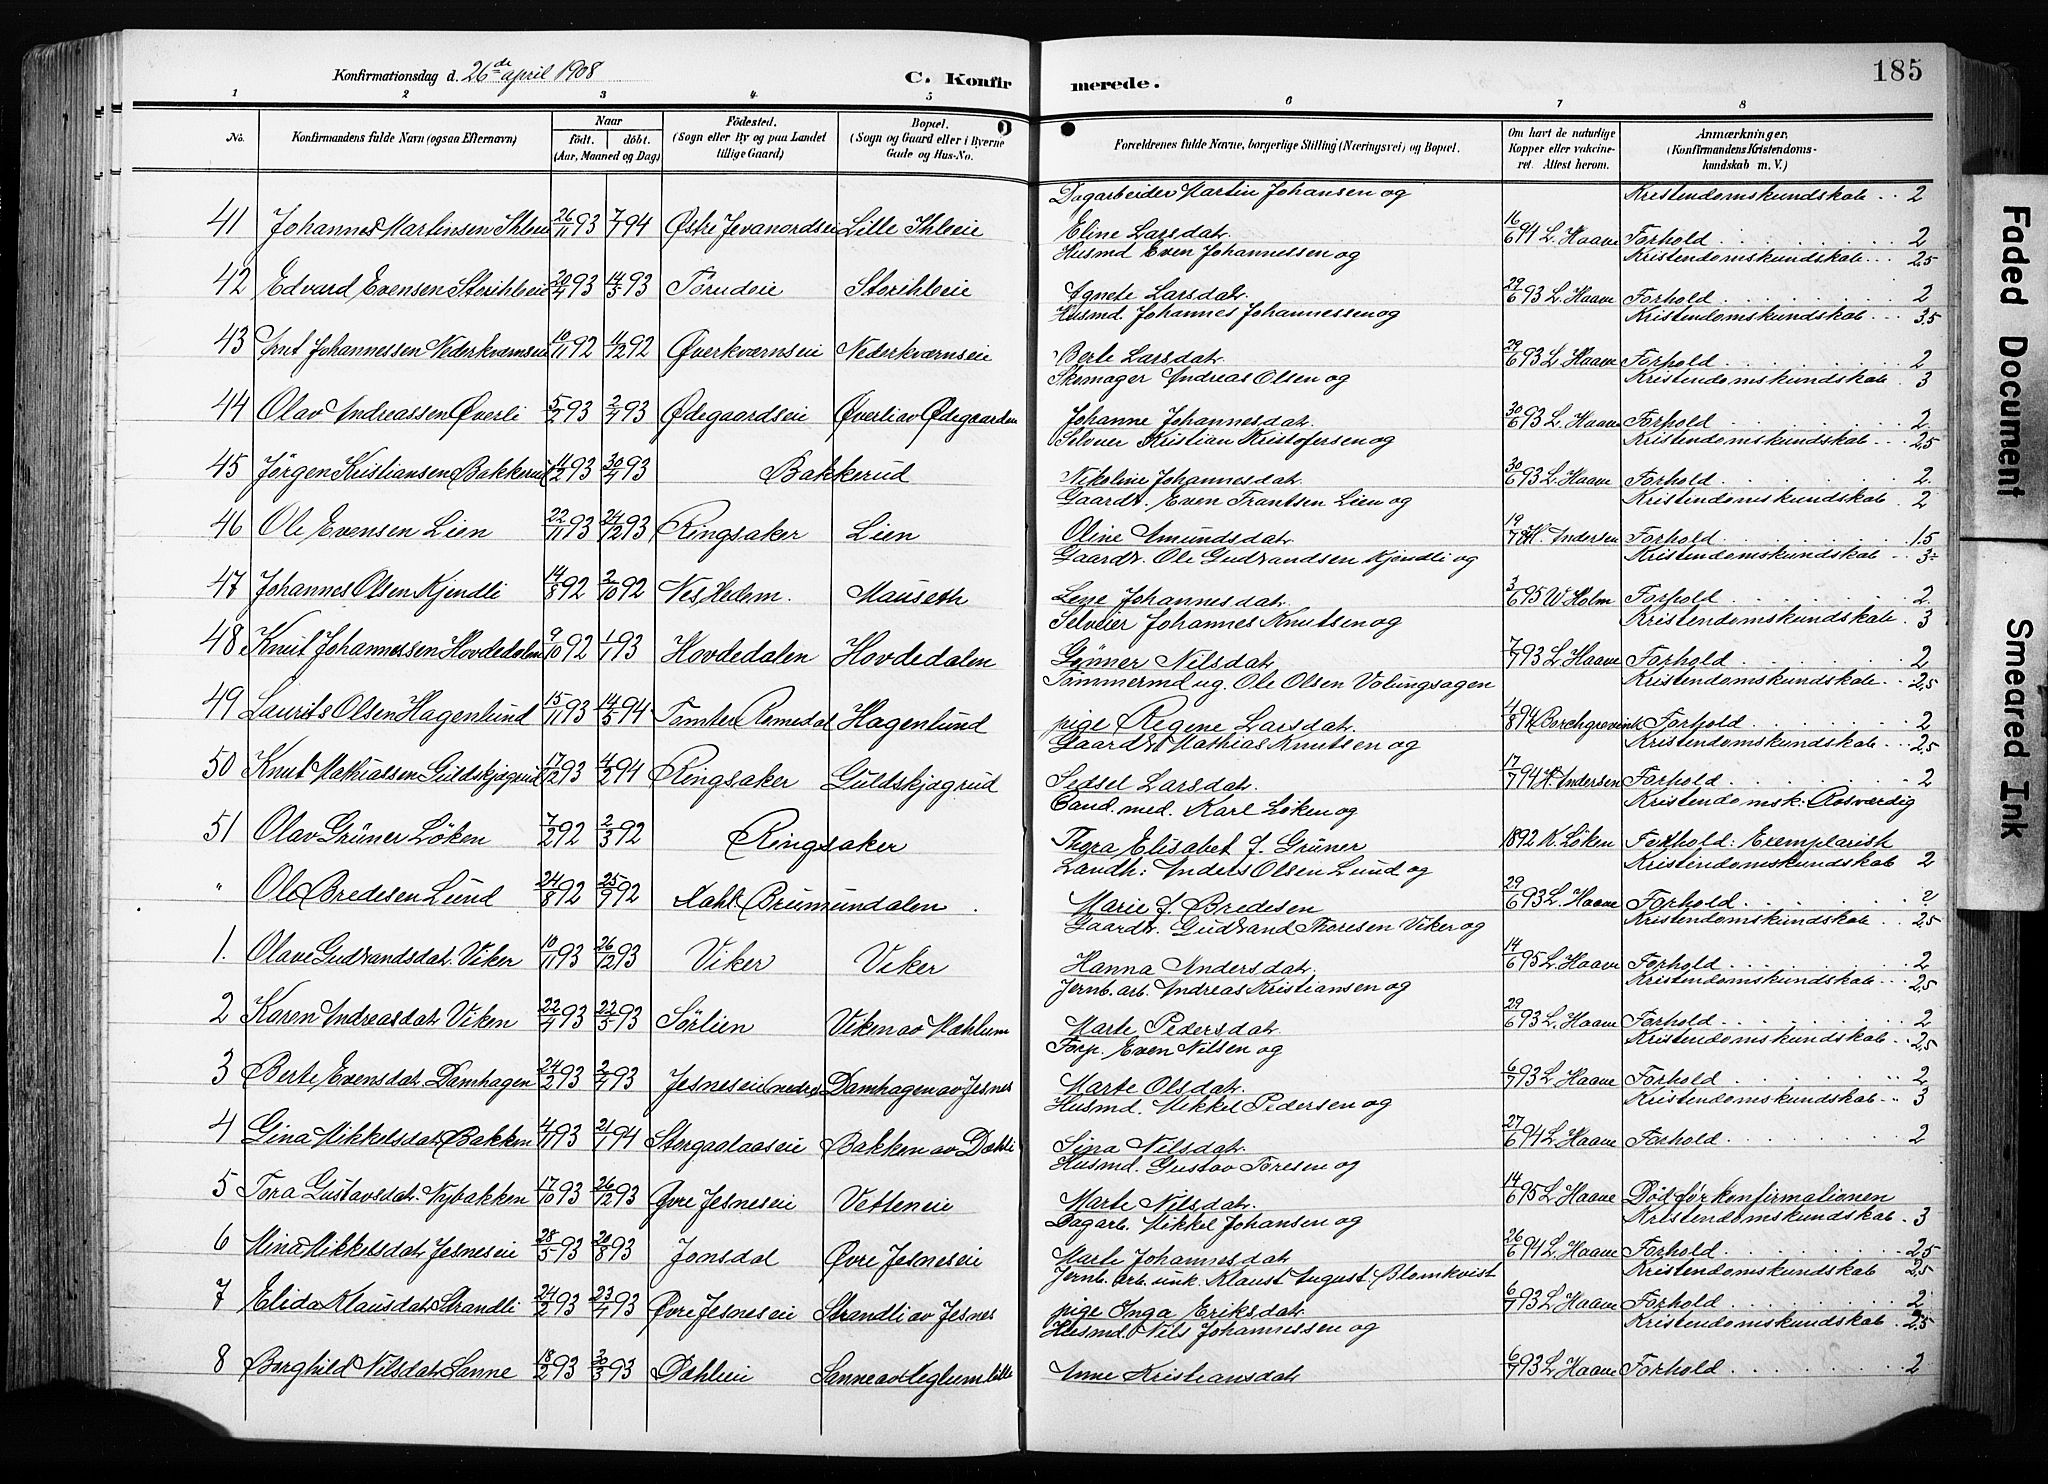 Konfirmationsdag d. 26de april 1908
C. Konfirmerede.
185
1 2 3 4 5 6 7 8
No. Konfirmandens fulde Navn (ogsaa Efternavn) Naar født. døbt. (Aar, Maaned og Dag) Fødested. (Sogn eller By og paa Landet tillige Gaard) Bopæl. (Sogn og Gaard eller i Byerne Gade og Hus-No.) Forældrenes fulde Navne, borgerlige Stilling (Næringsvei) og Bopæl. Om havt de naturlige Kopper eller vaccineret. Attest herom. Anmærkninger. (Konfirmandens Kristendomskundskab m. V.)
Dagarbeider Martin Johansen og Kristendomskundskab 2
41 Johannes Martinsen Ihleie 26/11 93 7/1 94 Østre Jevanordseie Lille Ihleie Eline Larsdat. 16/6 94 L. Haave Forhold 2
Husmd Even Johannessen og Kristendomskundskab 2,5
42 Edvard Evensen Storihleie 20/4 93 14/5 93 Törudeie Storihleie Agnete Larsdat. 29/6 93 L. Haave Forhold 2
Husmd. Johannes Johannessen og Kristendomskundskab 3,5
43 Ant Johannessen Nederkværnseie 10/11 92 4/12 92 Överkværnseie Nederkværnseie Berte Larsdat. 29/6 93 L. Haave Forhold 2
Skomager Andreas Olsen og Kristendomskundskab 3
44 Olav Andreassen Överli 5/2 93 2/4 93 Ødegaardseie Överli av Ødegaarden Johanne Johannesdat. 30/6 93 L. Haave Forhold 2
Selveier Kristian Kristofersen og Kristendomskundskab 2,5
45 Jörgen Kristiansen Bakkerud 11/2 93 30/4 93 Bakkerud Nikoline Johannesdat. 30/6 93 L. Haave Forhold 2
Gaardr. Even Frantsen Lien og Kristendomskundskab 2
46 Ole Evensen Lien 22/11 93 24/12 93 Ringsaker Lien Oline Amundsdat. 19/7 94 H. Andersen Forhold 1,5
Gaardr. Ole Gudbrandsen Kjendli og Kristendomskundskab 3
47 Johannes Olsen Kjendli 14/8 92 2/10 92 Nes Hedem. Mauseth Lene Johannesdat. 3/6 95 W Holm Forhold 2
Selveier Johannes Knutsen og Kristendomskundskab 3
48 Knut Johannessen Hovdedalen 9/10 92 1/1 93 Hovdedalen Hovdedalen Gunner Nilsdat. 7/7 93 L. Haave Forhold 2
Tömmermd ug. Ole Olsen Volungsagen Kristendomskundskab 2,5
49 Laurits Olsen Hagenlund 15/11 93 14/5 94 Tomter Romedal Hagenlund pige Regene Larsdat. 4/8 94 Borchgrevink Forhold 2
Gaardr. Mathias Knutsen og Kristendomskundskab 2,5
50 Knut Mathiassen Guldskjægrud 17/12 93 4/2 94 Ringsaker Guldskjægrud Sidsel Larsdat. 17/7 94 H. Andersen Forhold 2
Cand. med. Karl Løken og Kristendomsk: Rosværdig
51 Olav Grüner Löken 7/2 92 2/3 92 Ringsaker Thora Elisabet f. Grüner 1892 K. Løken Forhold: Exemplarisk
Landh: Anders Olsen Lund og Kristendomskundskab 2
" Ole Bredesen Lund 24/8 92 25/9 92 Brumundalen Marie f. Bredesen 29/6 93 L. Haave Forhold 2
Gaardr. Gudbrand Thoresen Viker og Kristendomskundskab 2,5
1. Olave Gudbrandsdat. Viker 10/11 93 26/12 93 Viker Viker Hanna Andersdat. 14/6 95 L. Haave Forhold 2
Jernb. arb. Andreas Kristiansen og Kristendomskundskab 2,5
2 Karen Andreasdat. Viken 22/4 93 22/5 93 Sörlien Viken av Mæhlum Marte Pedersdat. 29/6 93 L. Haave Forhold 2
Forp. Even Nilsen og Kristendomskundskab 2,5
3 Berte Evensdat. Damhagen 24/2 93 2/4 93 Jesneseie nedre Damhagen av Jesnes Marte Olsdat. 6/7 93 L. Haave Forhold 2
Husmd. Mikkel Pedersen og Kristendomskundskab 3
4 Gina Mikkelsdat. Bakken 4/11 93 21/1 94 Storgaalaaseie Bakken av Dæhli Sina Nilsdat. 27/6 94 L. Haave Forhold 2
Husmd. Gustav Toresen og
5 Tora Gustavsdat. Nybakken 17/10 93 26/12 93 Øvre Jesneseie Vetteneie Marte Nilsdat. 14/6 95 L. Haave Död för konfirmationen
Dagarb. Mikkel Johansen og Kristendomskundskab 3
6 Mina Mikkelsdat. Jesneseie 28/5 93 20/8 93 Jonsdal Øvre Jesneseie Marte Johannesdat. 26/6 94 L. Haave Forhold 2,5
Jernb. arb. unk. Klaust August Blomkvist Kristendomskundskab 2,5
7 Elida Klausdat. Strandli 24/2 93 23/4 93 Øvre Jesneseie Strandli av Jesnes pige Inga Eriksdat. 6/7 93 L. Haave Forhold 2
Husmd. Nils Johannessen og Kristendomskundskab 2,5
8 Borghild Nilsdat. Sanne 18/2 93 30/3 93 Dæhleie Sanne av Neglum lille Anne Kristiansdat. 6/7 93 L. Haave Forhold 2
Faded Document
Smeared Ink